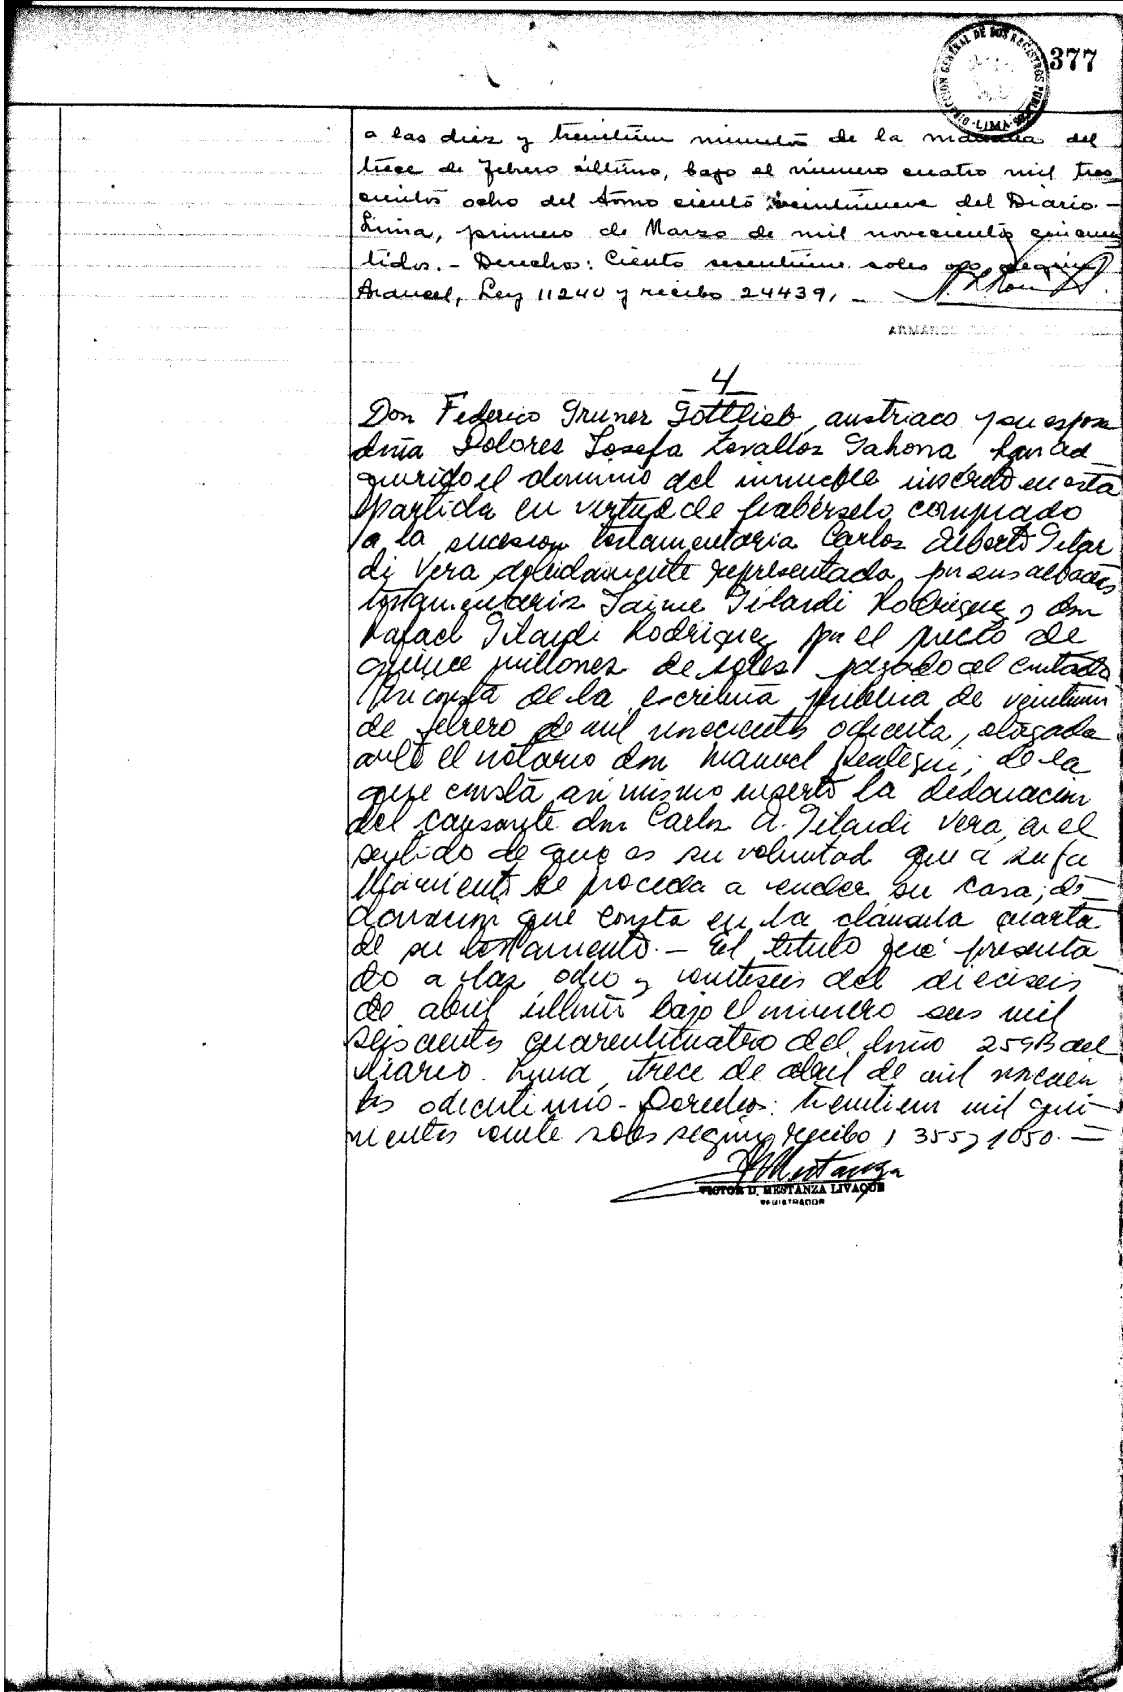 DIRECCIÓN GENERAL DE LOS REGISTROS PUBLICOS
-LIMA-
377
a las diez y treintiun minutos de la mañana del
trece de febrero último, bajo el número cuatro mil tres
cientos ocho del tomo ciento veintinueve del Diario.-
Lima, primero de Marzo de mil novecientos cincuen
tidos.- Derechos: Ciento sesentiun soles oro según
Arancel, Ley 11240 y recibo 24439,-
ARMANDO
4
Don Federico Gruner Gottlieb, austriaco y su esposa
doña Dolores Josefa Zevallos Gahona han ad
quirido el dominio del inmueble inscrito en esta
partida en virtud de habérselo comprado
a la sucesion testamentaria Carlos Alberto Gilar
di Vera debidamente representada por sus albaceas
testamentarios Jaime Gilardi Rodriguez y don
Rafael Gilardi Rodriguez por el precio de
quince millones de soles pagado al contado
Asi consta de la escritura pública de veintiuno
de febrero de mil novecientos ochenta, otorgada
ante el notario don Manuel Reategui; de la
que consta asi mismo inserto la declaracion
del causante don Carlos A. Gilardi Vera, en el
sentido de que es su voluntad que a su fa
llecimiento se proceda a vender su casa; de
claracion que consta en la cláusula cuarta
de su testamento.- El titulo fué presenta
do a las ocho y veintiseis del dieciseis
de abril último bajo el número seis mil
seiscientos cuarenticuatro del tomo 259B del
diario. Lima, trece de abril de mil novecien
tos ochentiuno- Derechos: treintiun mil qui-
nientos veinte soles según recibo 1355 y 1050.-
VICTOR D. MESTANZA LIVAQUE
REGISTRADOR